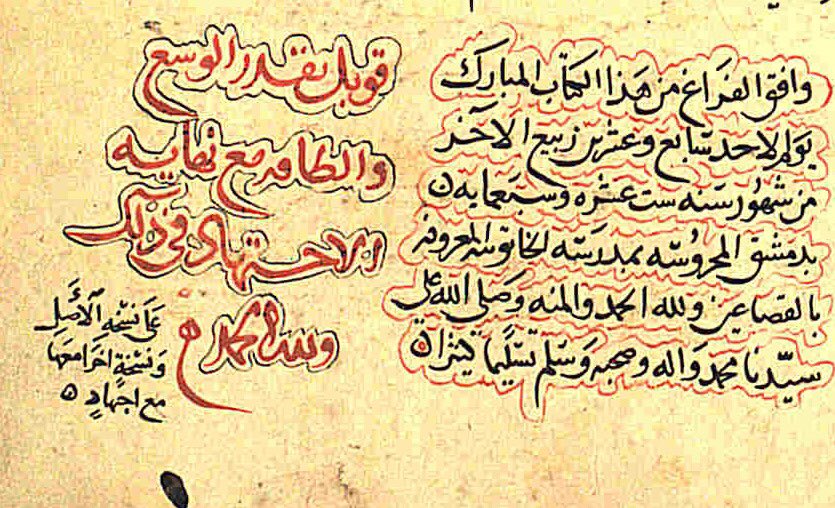 وافق الفراغ من هذا الكتاب المبارك
يوم الاحد سابع وعشرين ربيع الآخر
من شهور سنه ست عشره وسبعمايه
بدمشق المحروسه بمدرسه الخاتونيه المعروفه
بالقصاعين ولله الحمد والمنه وصلى الله على
سيّدنا محمد واله وصحبه وسلم تسليمًا كثيرا
قوبل بقدر الوسع
والطاقه مع نهايه
الاجتهاد في ذلك
ولله الحمد
على نسخه الأصل
ونسخةٍ اخرا معها
مع اجتهادٍ